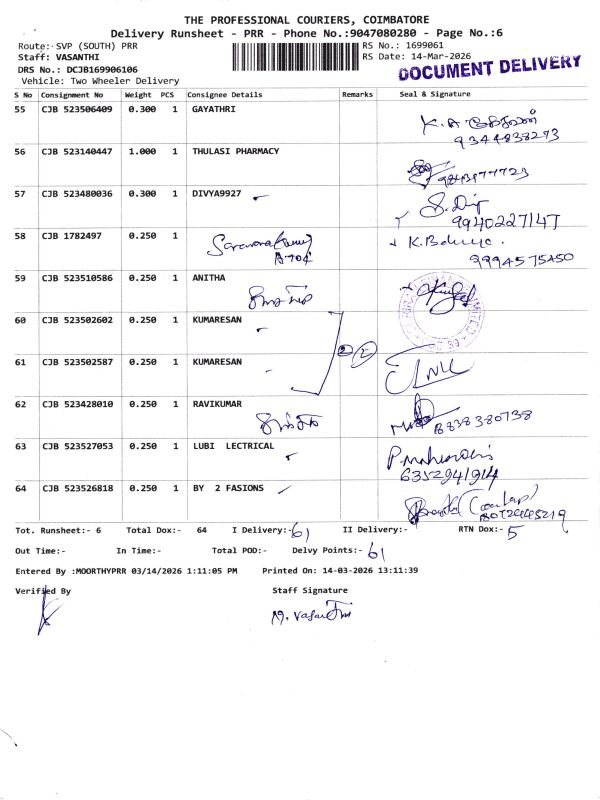 THE PROFESSIONAL COURIERS, COIMBATORE
Delivery Runsheet - PRR - Phone No.:9047080280 - Page No.:6
Route:- SVP (SOUTH) PRR
RS No.: 1699061
Staff: VASANTHI
RS Date: 14-Mar-2026
DRS No.: DCJB169906106
DOCUMENT DELIVERY
Vehicle: Two Wheeler Delivery
S No Consignment No Weight PCS Consignee Details Remarks Seal & Signature
55 CJB 523506409 0.300 1 GAYATHRI
K. A
9344838293
56 CJB 523140447 1.000 1 THULASI PHARMACY
9843977723
57 CJB 523480036 0.300 1 DIVYA9927
9940227147
58 CJB 1782497 0.250 1
A-704
9994575450
59 CJB 523510586 0.250 1 ANITHA
60 CJB 523502602 0.250 1 KUMARESAN
61 CJB 523502587 0.250 1 KUMARESAN
62 CJB 523428010 0.250 1 RAVIKUMAR
8838380738
63 CJB 523527053 0.250 1 LUBI LECTRICAL
6352941914
64 CJB 523526818 0.250 1 BY 2 FASIONS
Tot. Runsheet:- 6 Total Dox:- 64 I Delivery:- 61 II Delivery:- RTN Dox:- 5
Out Time:- In Time:- Total POD:- Delvy Points:- 61
Entered By :MOORTHYPRR 03/14/2026 1:11:05 PM Printed On: 14-03-2026 13:11:39
Verified By Staff Signature